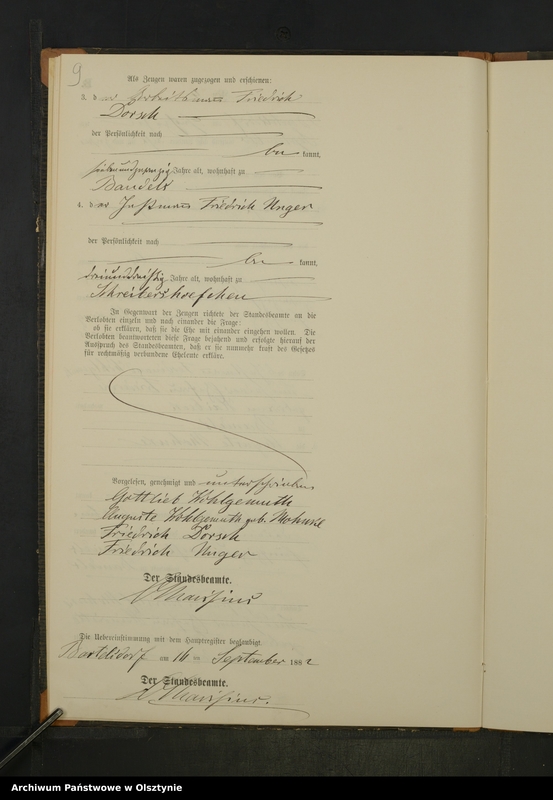 9
Als Zeugen waren zugezogen und erschienen:
3. der Friedrich
Dorsch
der Persönlichkeit nach
be kannt,
siebenundzwanzig Jahre alt, wohnhaft zu
Bandels
4. der Instmann Friedrich Unger
der Persönlichkeit nach
be kannt,
dreiunddreißig Jahre alt, wohnhaft zu
Schreibershoefchen
In Gegenwart der Zeugen richtete der Standesbeamte an die
Verlobten einzeln und nach einander die Frage:
ob sie erklären, daß sie die Ehe mit einander eingehen wollen. Die
Verlobten beantworteten diese Frage bejahend und erfolgte hierauf der
Ausspruch des Standesbeamten, daß er sie nunmehr kraft des Gesetzes
für rechtmäßig verbundene Eheleute erkläre.
Vorgelesen, genehmigt und unterschrieben
Gottlieb Wohlgemuth
Auguste Wohlgemuth geb. Mohnke
Friedrich Dorsch
Friedrich Unger
Der Standesbeamte.
Die Uebereinstimmung mit dem Hauptregister beglaubigt
Bartelsdorf am 16 ten September 1882
Der Standesbeamte.
Archiwum Państwowe w Olsztynie